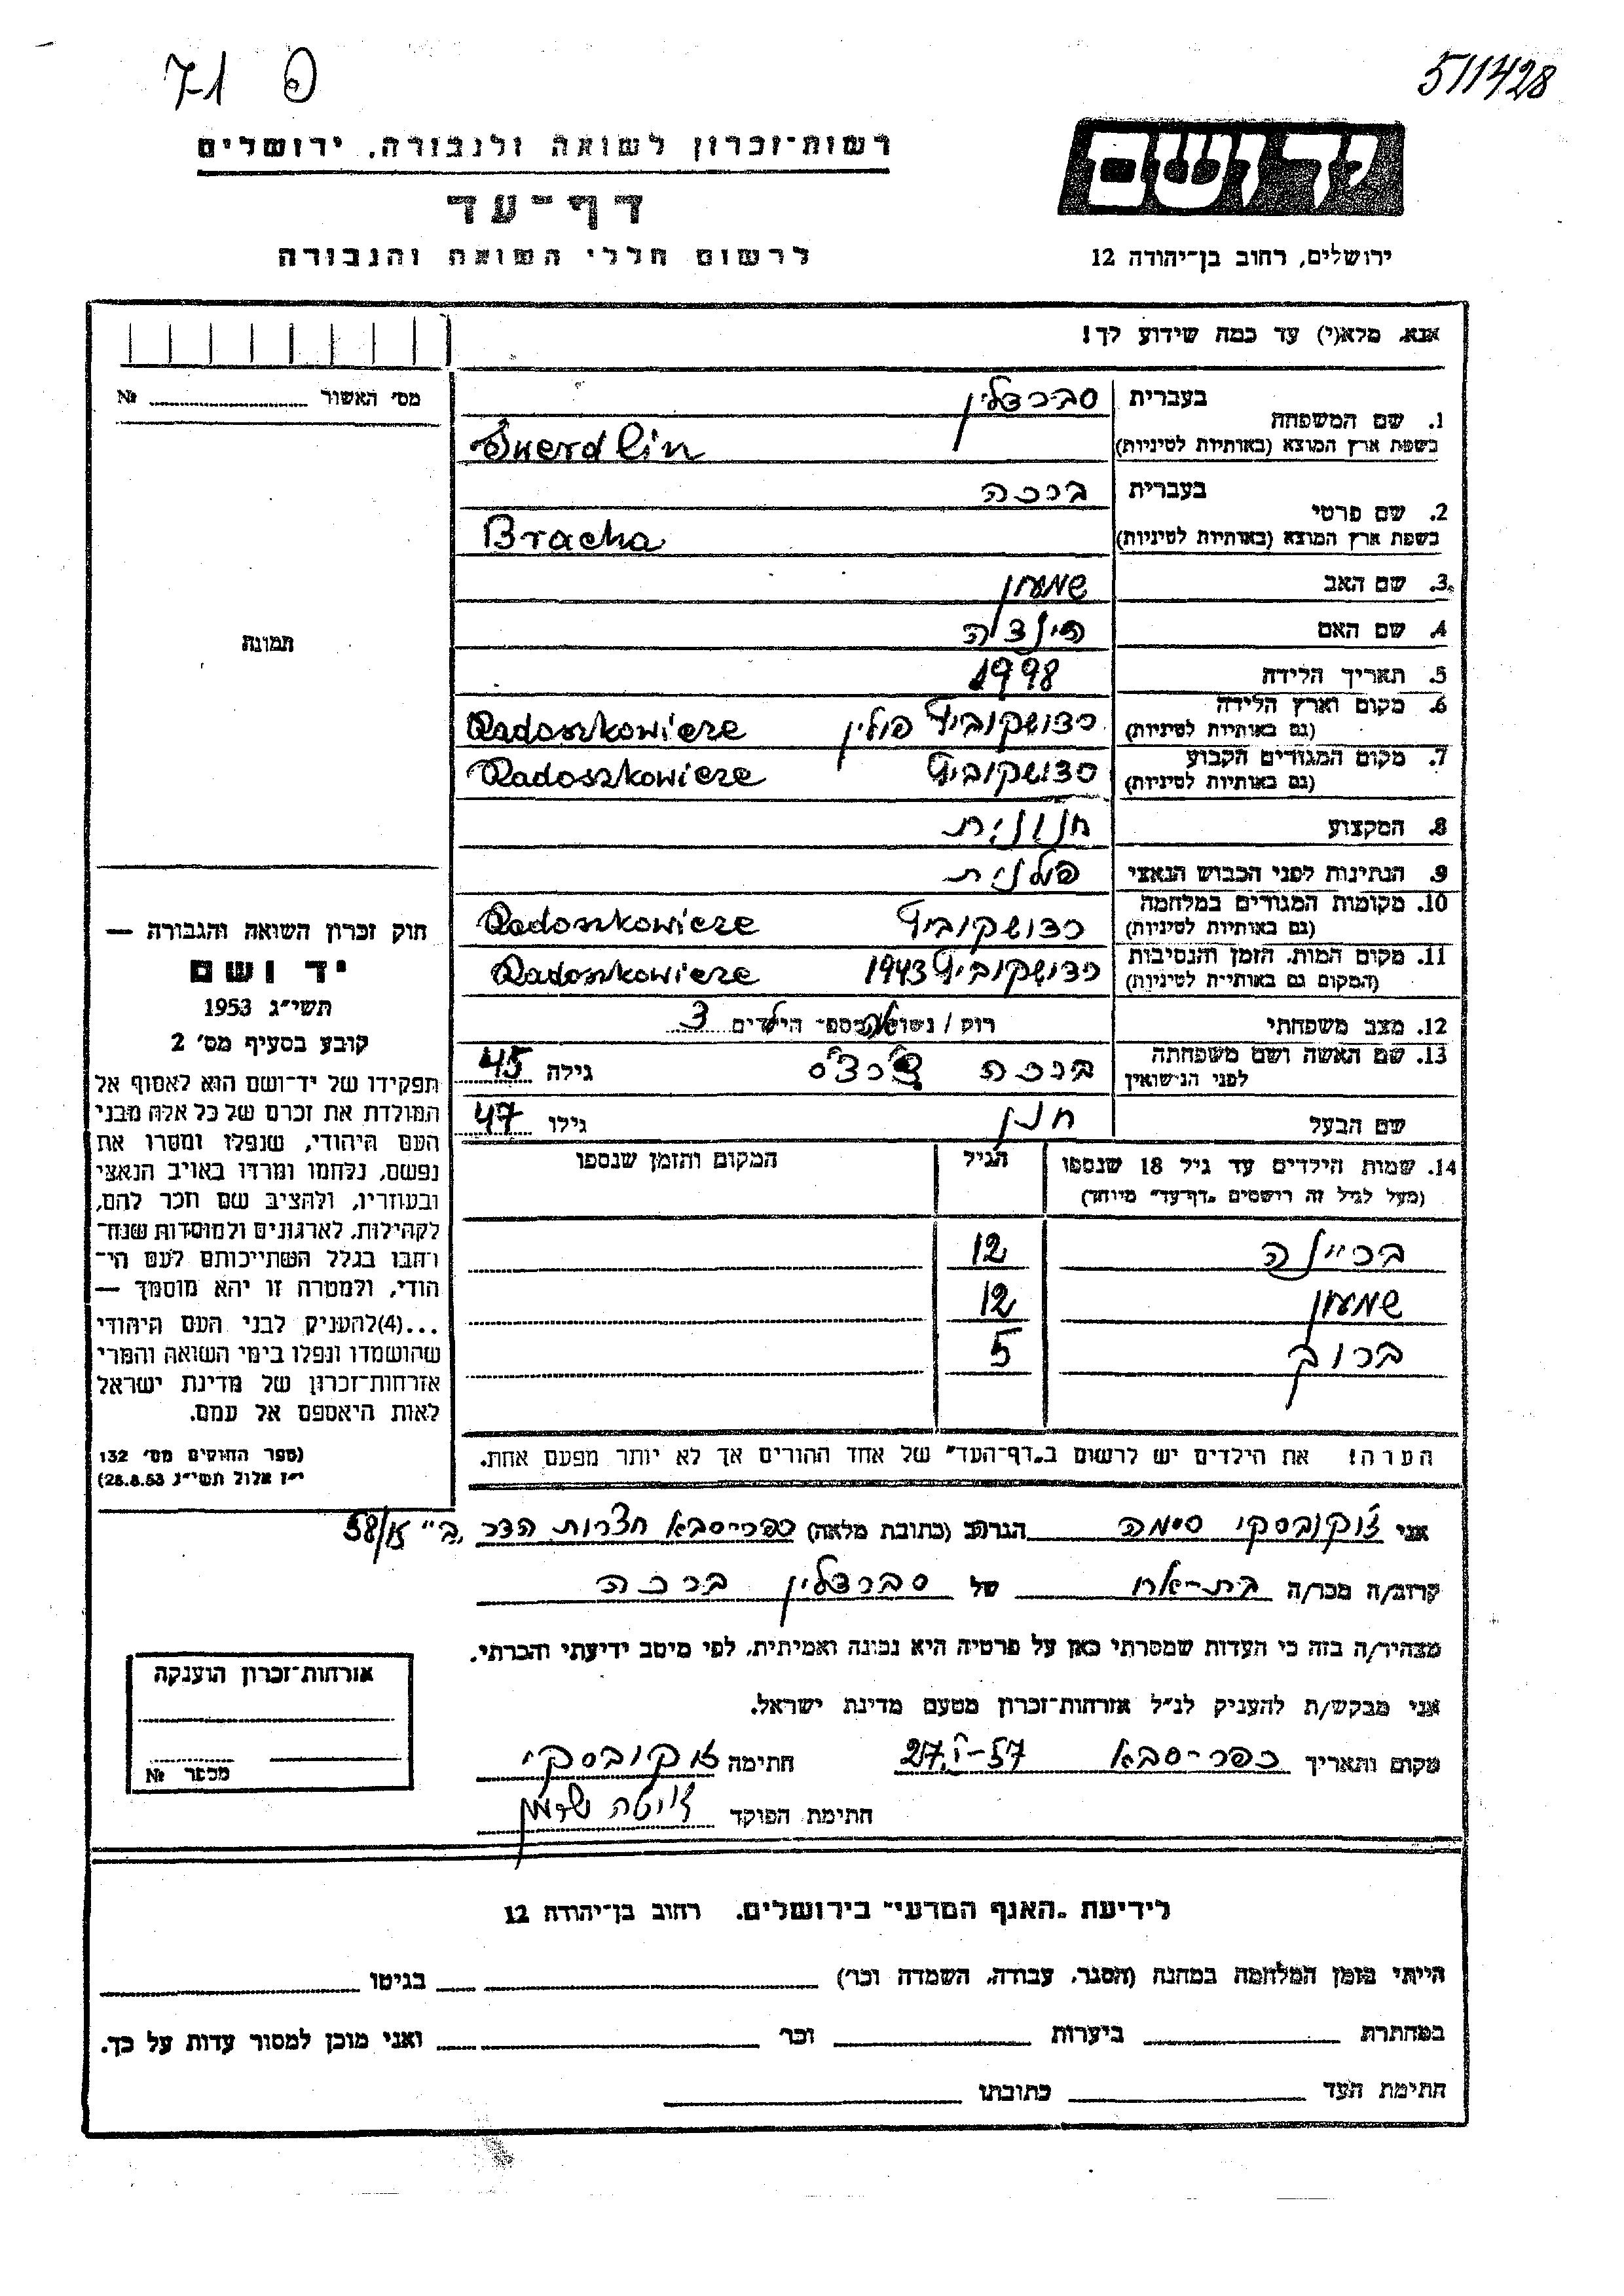 פ 71
511428
יד ושם
ירושלים, רחוב בן־יהודה 12
רשות־זכרון לשואה ולגבורה, ירושלים
דף־עד
לרשום חללי השואה והגבורה
אנא, מלא(י) עד כמה שידוע לך!
מס' האשור № 
1. שם המשפחה
בעברית סברדלין
בשפת ארץ המוצא (באותיות לטיניות) Swerdlin
2. שם פרטי
בעברית ברכה
בשפת ארץ המוצא (באותיות לטיניות) Bracha
3. שם האב שמעון
4. שם האם
5. תאריך הלידה
6. מקום וארץ הלידה רדושקוביץ פולין Radoszkowicze
(גם באותיות לטיניות)
7. מקום המגורים הקבוע רדושקוביץ Radoszkowicze
(גם באותיות לטיניות)
8. המקצוע חנונית
9. הנתינות לפני הכבוש הנאצי פולנית
10. מקומות המגורים במלחמה רדושקוביץ Radoszkowicze
(גם באותיות לטיניות)
11. מקום המות, הזמן והנסיבות רדושקוביץ 1943 Radoszkowicze
(המקום גם באותיות לטיניות)
12. מצב משפחתי רוק / נשואה מספר הילדים 3
13. שם האשה ושם משפחתה ברכה גילה 45
לפני הנישואין
שם הבעל חנן גילו 47
14. שמות הילדים עד גיל 18 שנספו הגיל המקום והזמן שנספו
(מעל לגיל זה רושמים "דף־עד" מיוחד)
12
שמעון 12
ברוך 5
הערה! את הילדים יש לרשום ב"דף־העד" של אחד ההורים אך לא יותר מפעם אחת.
תמונה
חוק זכרון השואה והגבורה —
יד ושם
תשי"ג 1953
קובע בסעיף מס' 2
תפקידו של יד־ושם הוא לאסוף אל
המולדת את זכרם של כל אלה מבני
העם היהודי, שנפלו ומסרו את
נפשם, נלחמו ומרדו באויב הנאצי
ובעוזריו, ולהציב שם וזכר להם,
לקהילות, לארגונים ולמוסדות שנח־
רבו בגלל השתייכותם לעם הי־
הודי, ולמטרה זו יהא מוסמך —
...(4)להעניק לבני העם היהודי
שהושמדו ונפלו בימי השואה והמרי
אזרחות־זכרון של מדינת ישראל
לאות היאספם אל עמם.
(ספר החוקים מס' 132
י"ז אלול תשי"ג 28.8.53)
אני ז'וקובסקי סימה הגר/ה ב (כתובת מלאה) כפר־סבא חצרות הדר
קרוב/ה מכר/ה בת־אח של סברדלין ברכה
מצהיר/ה בזה כי העדות שמסרתי כאן על פרטיה היא נכונה ואמיתית, לפי מיטב ידיעתי והכרתי.
אני מבקש/ת להעניק לנ"ל אזרחות־זכרון מטעם מדינת ישראל.
מקום ותאריך כפר־סבא חתימה זוקובסקי
חתימת הפוקד
אזרחות־זכרון הוענקה
מספר №
לידיעת "האגף המדעי" בירושלים, רחוב בן־יהודה 12
הייתי בזמן המלחמה במחנה (הסגר, עבודה, השמדה וכו') בגיטו
במחתרת ביערות וכו' ואני מוכן למסור עדות על כך.
חתימת העד כתובתו